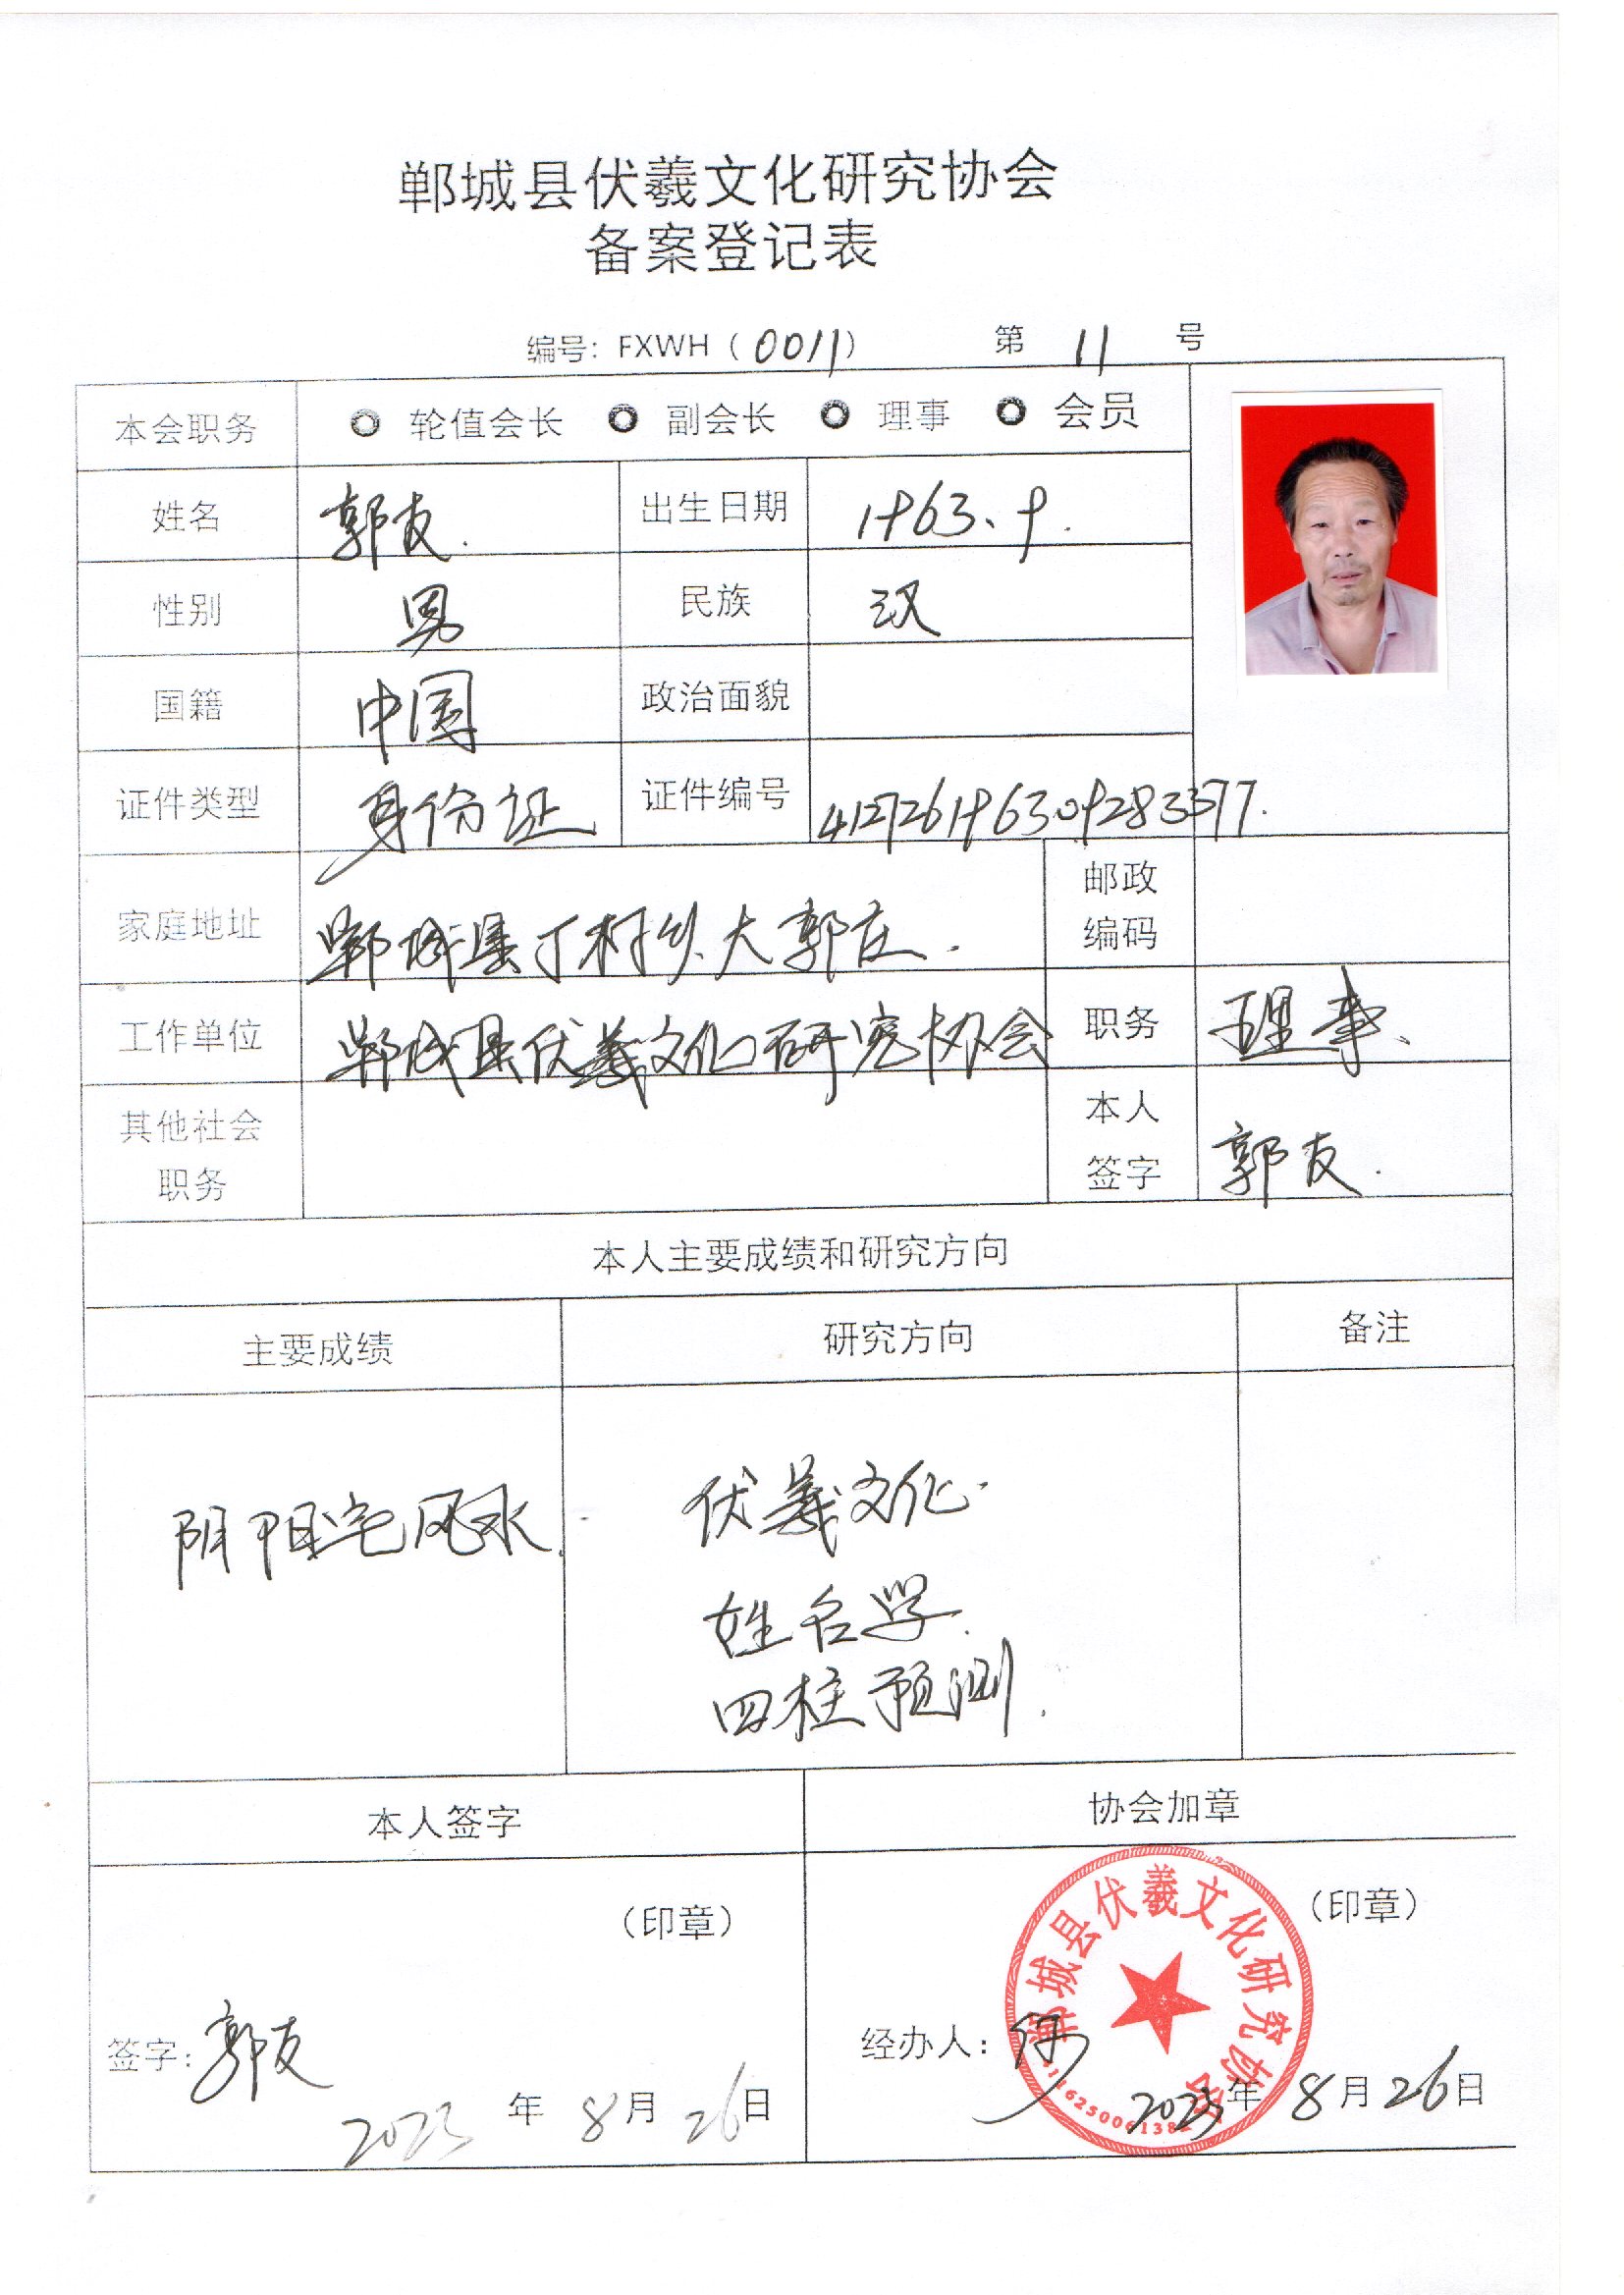 郸城县伏羲文化研究协会
备案登记表
编号：FXWH（0011） 第 11 号
本会职务 轮值会长 副会长 理事 会员
姓名 郭友. 出生日期 1963、9.
性别 男 民族 汉
国籍 中国 政治面貌
证件类型 身份证 证件编号 412726196309283377.
家庭地址 郸城县丁村乡大郭庄. 邮政编码
工作单位 郸城县伏羲文化研究协会 职务 理事、
其他社会职务 本人签字 郭友.
本人主要成绩和研究方向
主要成绩 研究方向 备注
阴阳宅风水. 伏羲文化.
姓名学.
四柱预测.
本人签字 协会加章
（印章） （印章）
郸城县伏羲文化研究协会
签字：郭友 经办人：
2023年8月26日 2023年8月26日